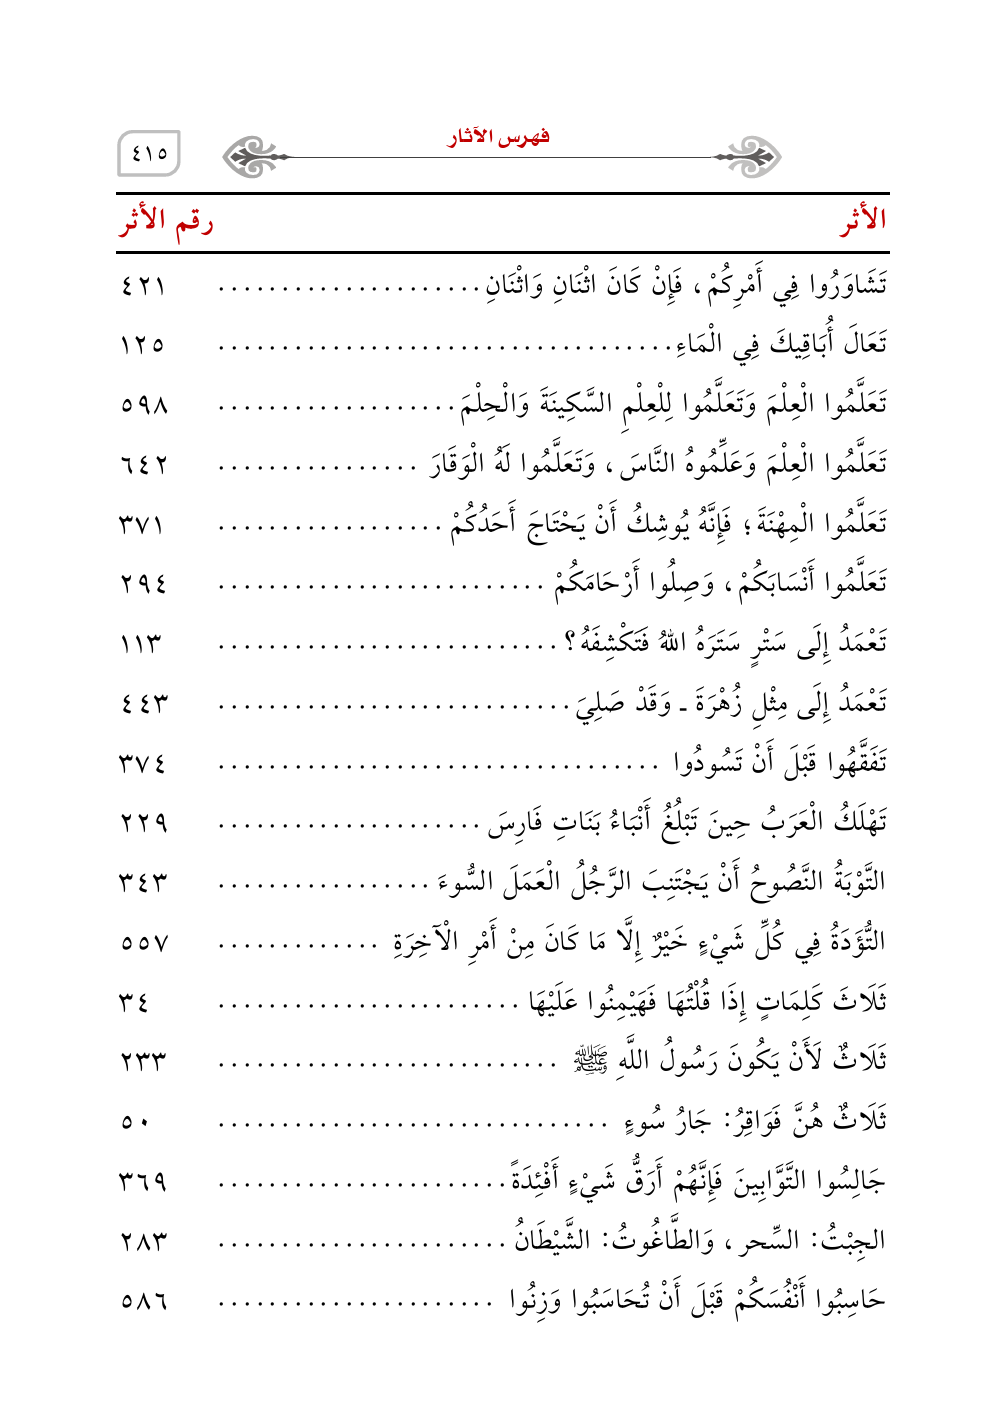 فهرس الآثار
٤١٥
الأثر رقم الأثر
تَشَاوَرُوا فِي أَمْرِكُمْ، فَإِنْ كَانَ اثْنَانِ وَاثْنَانِ ..................... ٤٢١
تَعَالَ أُبَاقِيكَ فِي الْمَاءِ .................................... ١٢٥
تَعَلَّمُوا الْعِلْمَ وَتَعَلَّمُوا لِلْعِلْمِ السَّكِينَةَ وَالْحِلْمَ ................... ٥٩٨
تَعَلَّمُوا الْعِلْمَ وَعَلِّمُوهُ النَّاسَ، وَتَعَلَّمُوا لَهُ الْوَقَارَ ................ ٦٤٢
تَعَلَّمُوا الْمِهْنَةَ؛ فَإِنَّهُ يُوشِكُ أَنْ يَحْتَاجَ أَحَدُكُمْ .................. ٣٧١
تَعَلَّمُوا أَنْسَابَكُمْ، وَصِلُوا أَرْحَامَكُمْ .......................... ٢٩٤
تَعْمَدُ إِلَى سَتْرٍ سَتَرَهُ اللهُ فَتَكْشِفَهُ؟ ........................... ١١٣
تَعْمَدُ إِلَى مِثْلِ زُهْرَةَ ـ وَقَدْ صَلِيَ ............................ ٤٤٣
تَفَقَّهُوا قَبْلَ أَنْ تَسُودُوا ................................... ٣٧٤
تَهْلَكُ الْعَرَبُ حِينَ تَبْلُغُ أَنْبَاءُ بَنَاتِ فَارِسَ ..................... ٢٢٩
التَّوْبَةُ النَّصُوحُ أَنْ يَجْتَنِبَ الرَّجُلُ الْعَمَلَ السُّوءَ ................. ٣٤٣
التُّؤَدَةُ فِي كُلِّ شَيْءٍ خَيْرٌ إِلَّا مَا كَانَ مِنْ أَمْرِ الْآخِرَةِ ............. ٥٥٧
ثَلَاثَ كَلِمَاتٍ إِذَا قُلْتُهَا فَهَيْمِنُوا عَلَيْهَا ........................ ٣٤
ثَلَاثٌ لَأَنْ يَكُونَ رَسُولُ اللَّهِ ﷺ ........................... ٢٣٣
ثَلَاثٌ هُنَّ فَوَاقِرُ: جَارُ سُوءٍ ............................... ٥٠
جَالِسُوا التَّوَّابِينَ فَإِنَّهُمْ أَرَقُّ شَيْءٍ أَفْئِدَةً ....................... ٣٦٩
الجِبْتُ: السِّحر، وَالطَّاغُوتُ: الشَّيْطَانُ ....................... ٢٨٣
حَاسِبُوا أَنْفُسَكُمْ قَبْلَ أَنْ تُحَاسَبُوا وَزِنُوا ...................... ٥٨٦